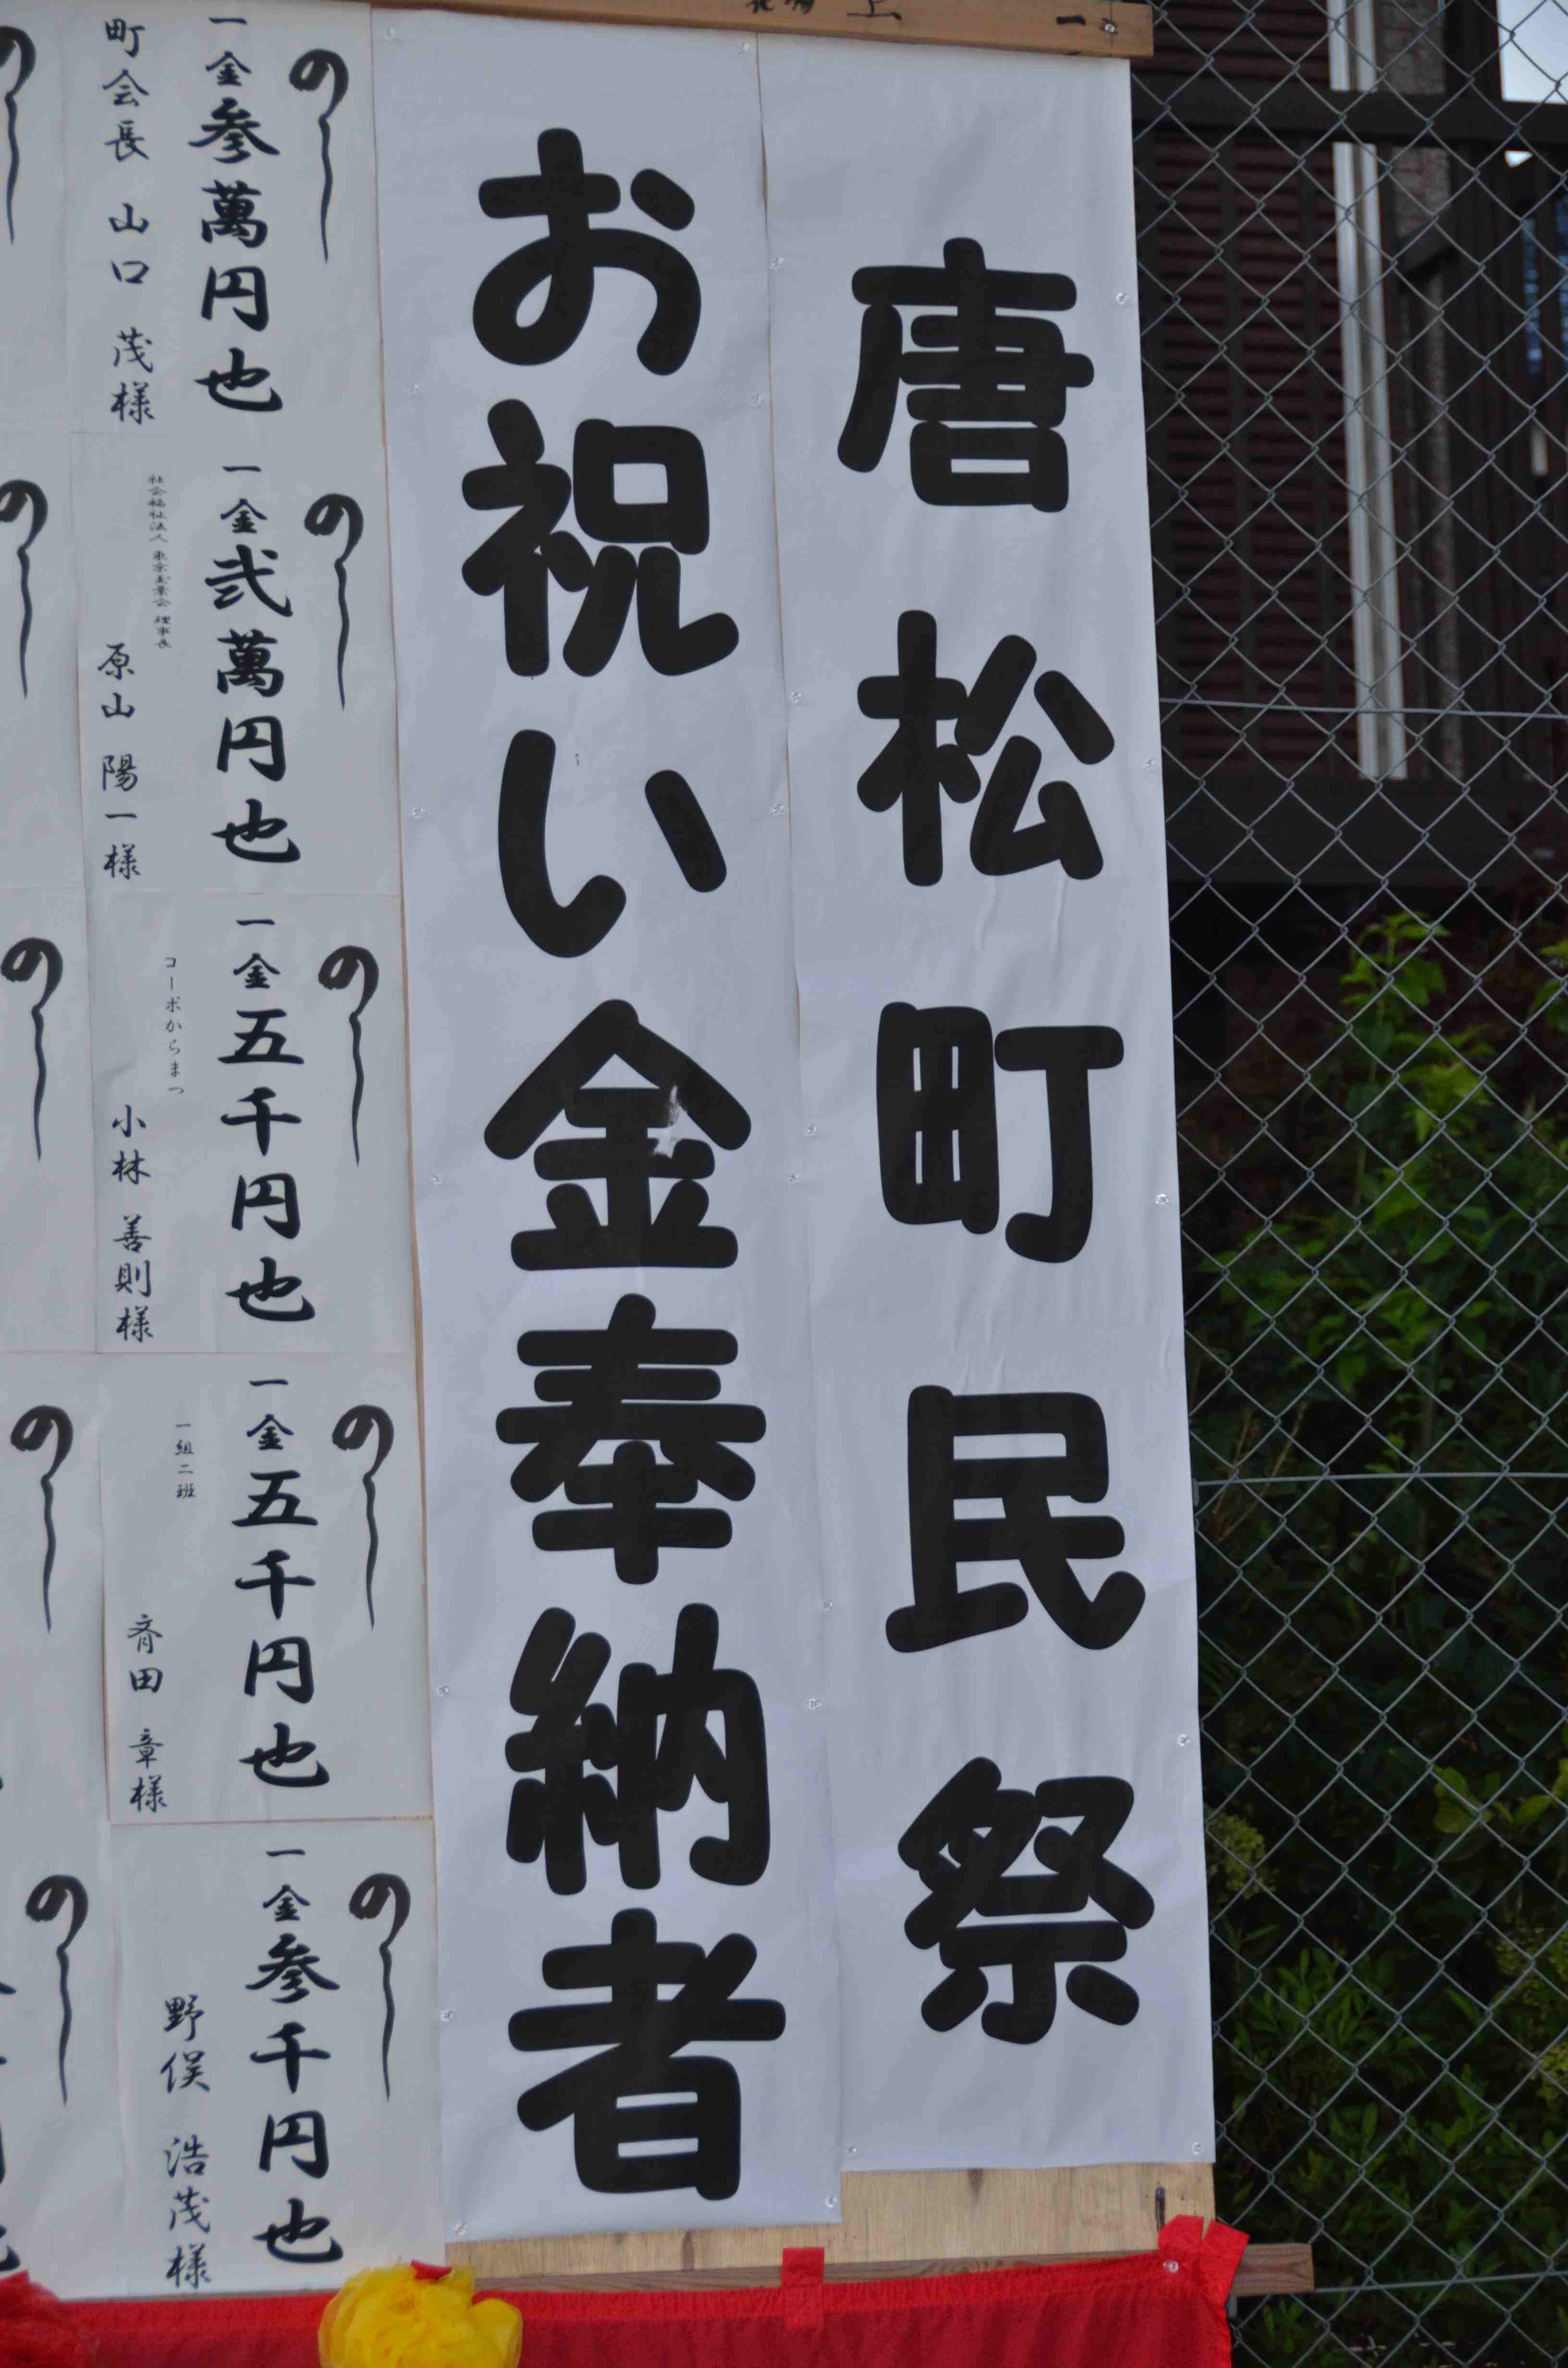 唐松町民祭
お祝い金奉納者
の
一金参萬円也
町会長 山口 茂様
の
一金弐萬円也
社会福祉法人 東京玉葉会 理事長
原山 陽一様
の
一金五千円也
コーポからまつ
小林 善則様
の
一金五千円也
一組二班
斉田 章様
の
一金参千円也
野俣 浩茂様
の
の
の
の
の